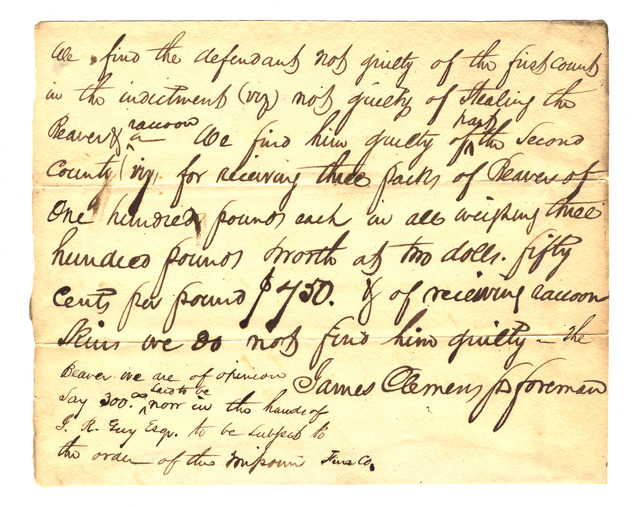 We find the defendant not guilty of the first count
in the indictment (viz) not guilty of stealing the
Beaver & raccoon We find him guilty of part the second
County (viz, for receiving three packs of Beaver of
One hundred pounds each in all weighing three
hundred pounds worth at two dolls. fifty
cents per pound $750. & of receiving raccoon
skins we do not find him guilty – The
Beaver we are of opinion
James Clemens Jr foreman
Say 300. said to be now in the hands of
J. R. Guy Esqr. to be subject to
the order of the Missouri Fur Co.